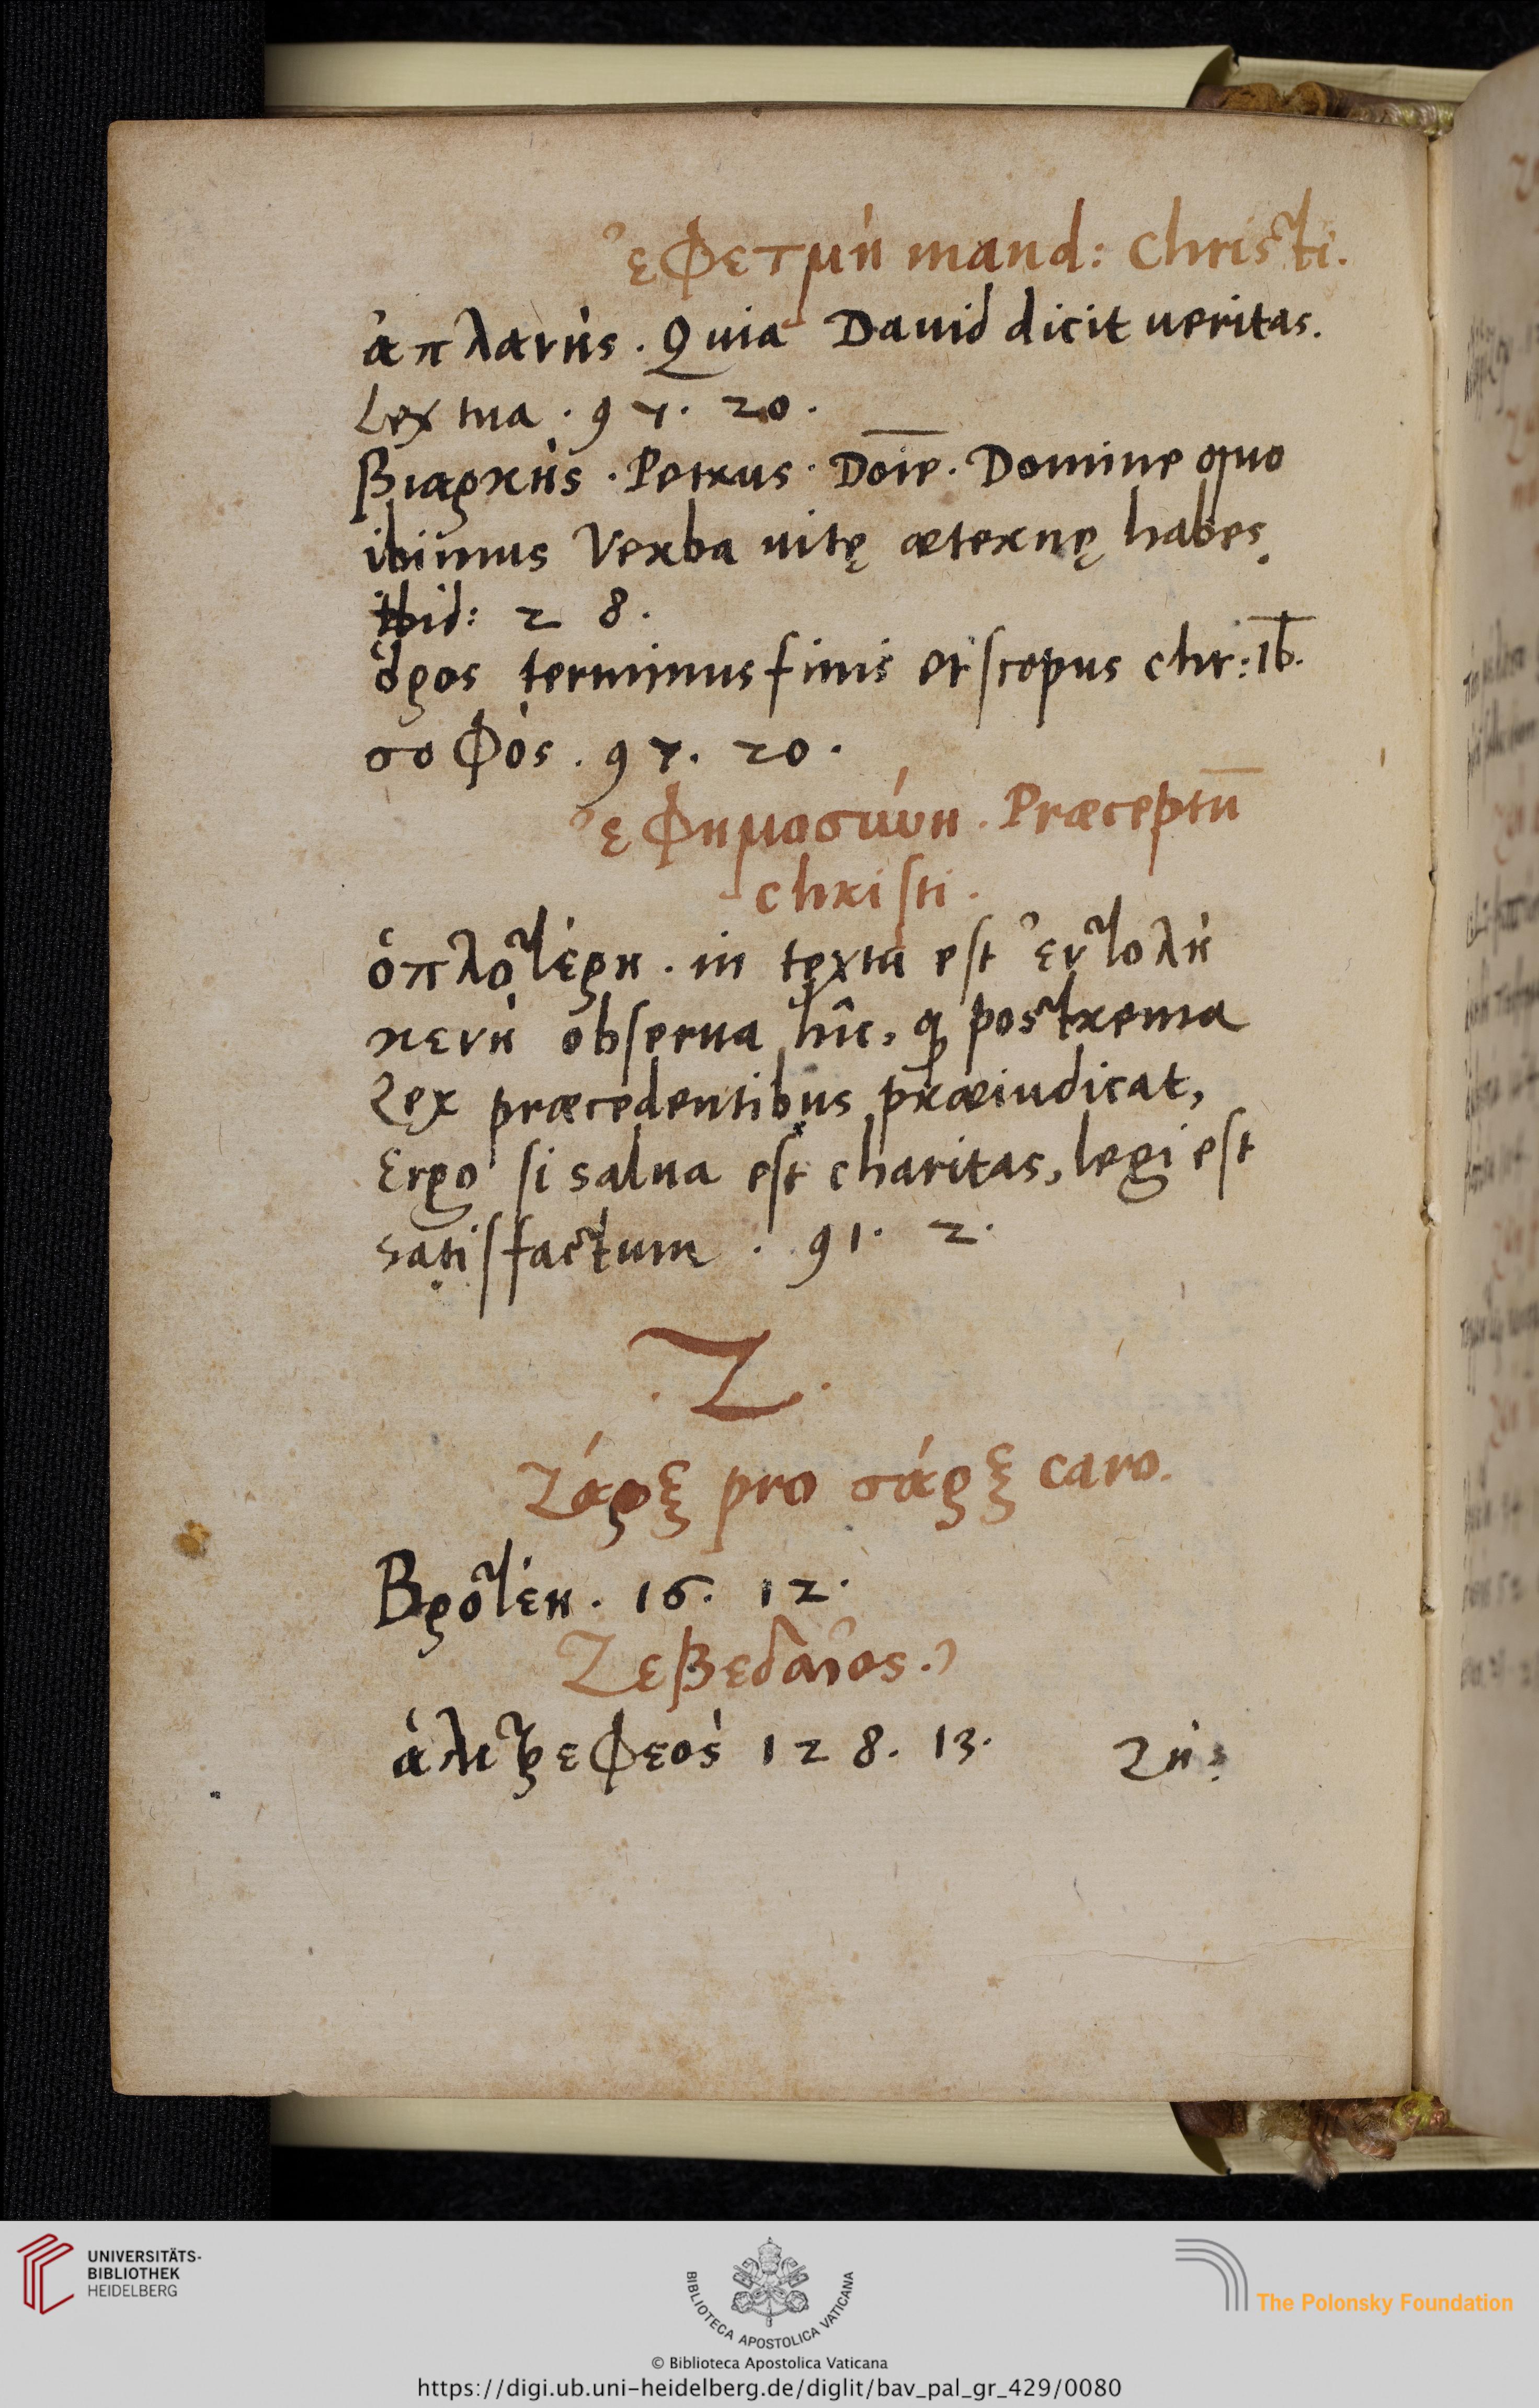 ἐφετμή mand: Christi.
ἀπλανής. Quia Dauid dicit ueritas.
Lex tua. 97. 20.
βιαρκής. Petrus. Doīe. Domine quo
ibimus Verba uitę æternę habes.
Ibid: 2 8.
ὅρος terminus finis et scopus chr: ib.
σοφός. 97. 20.
ἐφημοσύνη. Præceptū
christi.
ὁπλοτέρη. in textu est ἐντολή
κενή obserua hîc, q postrema
Lex præcedentibus præiudicat,
Ergo si salua est charitas, legi est
satisfactum. 91. 2.
. Z .
Ζάρξ pro σάρξ caro.
Βροτέη. 16. 12.
Ζεβεδαῖος.
ἁλιτρεφεός 128. 13. Ζής
UNIVERSITÄTS-
BIBLIOTHEK
HEIDELBERG
BIBLIOTECA APOSTOLICA VATICANA
The Polonsky Foundation
© Biblioteca Apostolica Vaticana
https://digi.ub.uni-heidelberg.de/diglit/bav_pal_gr_429/0080